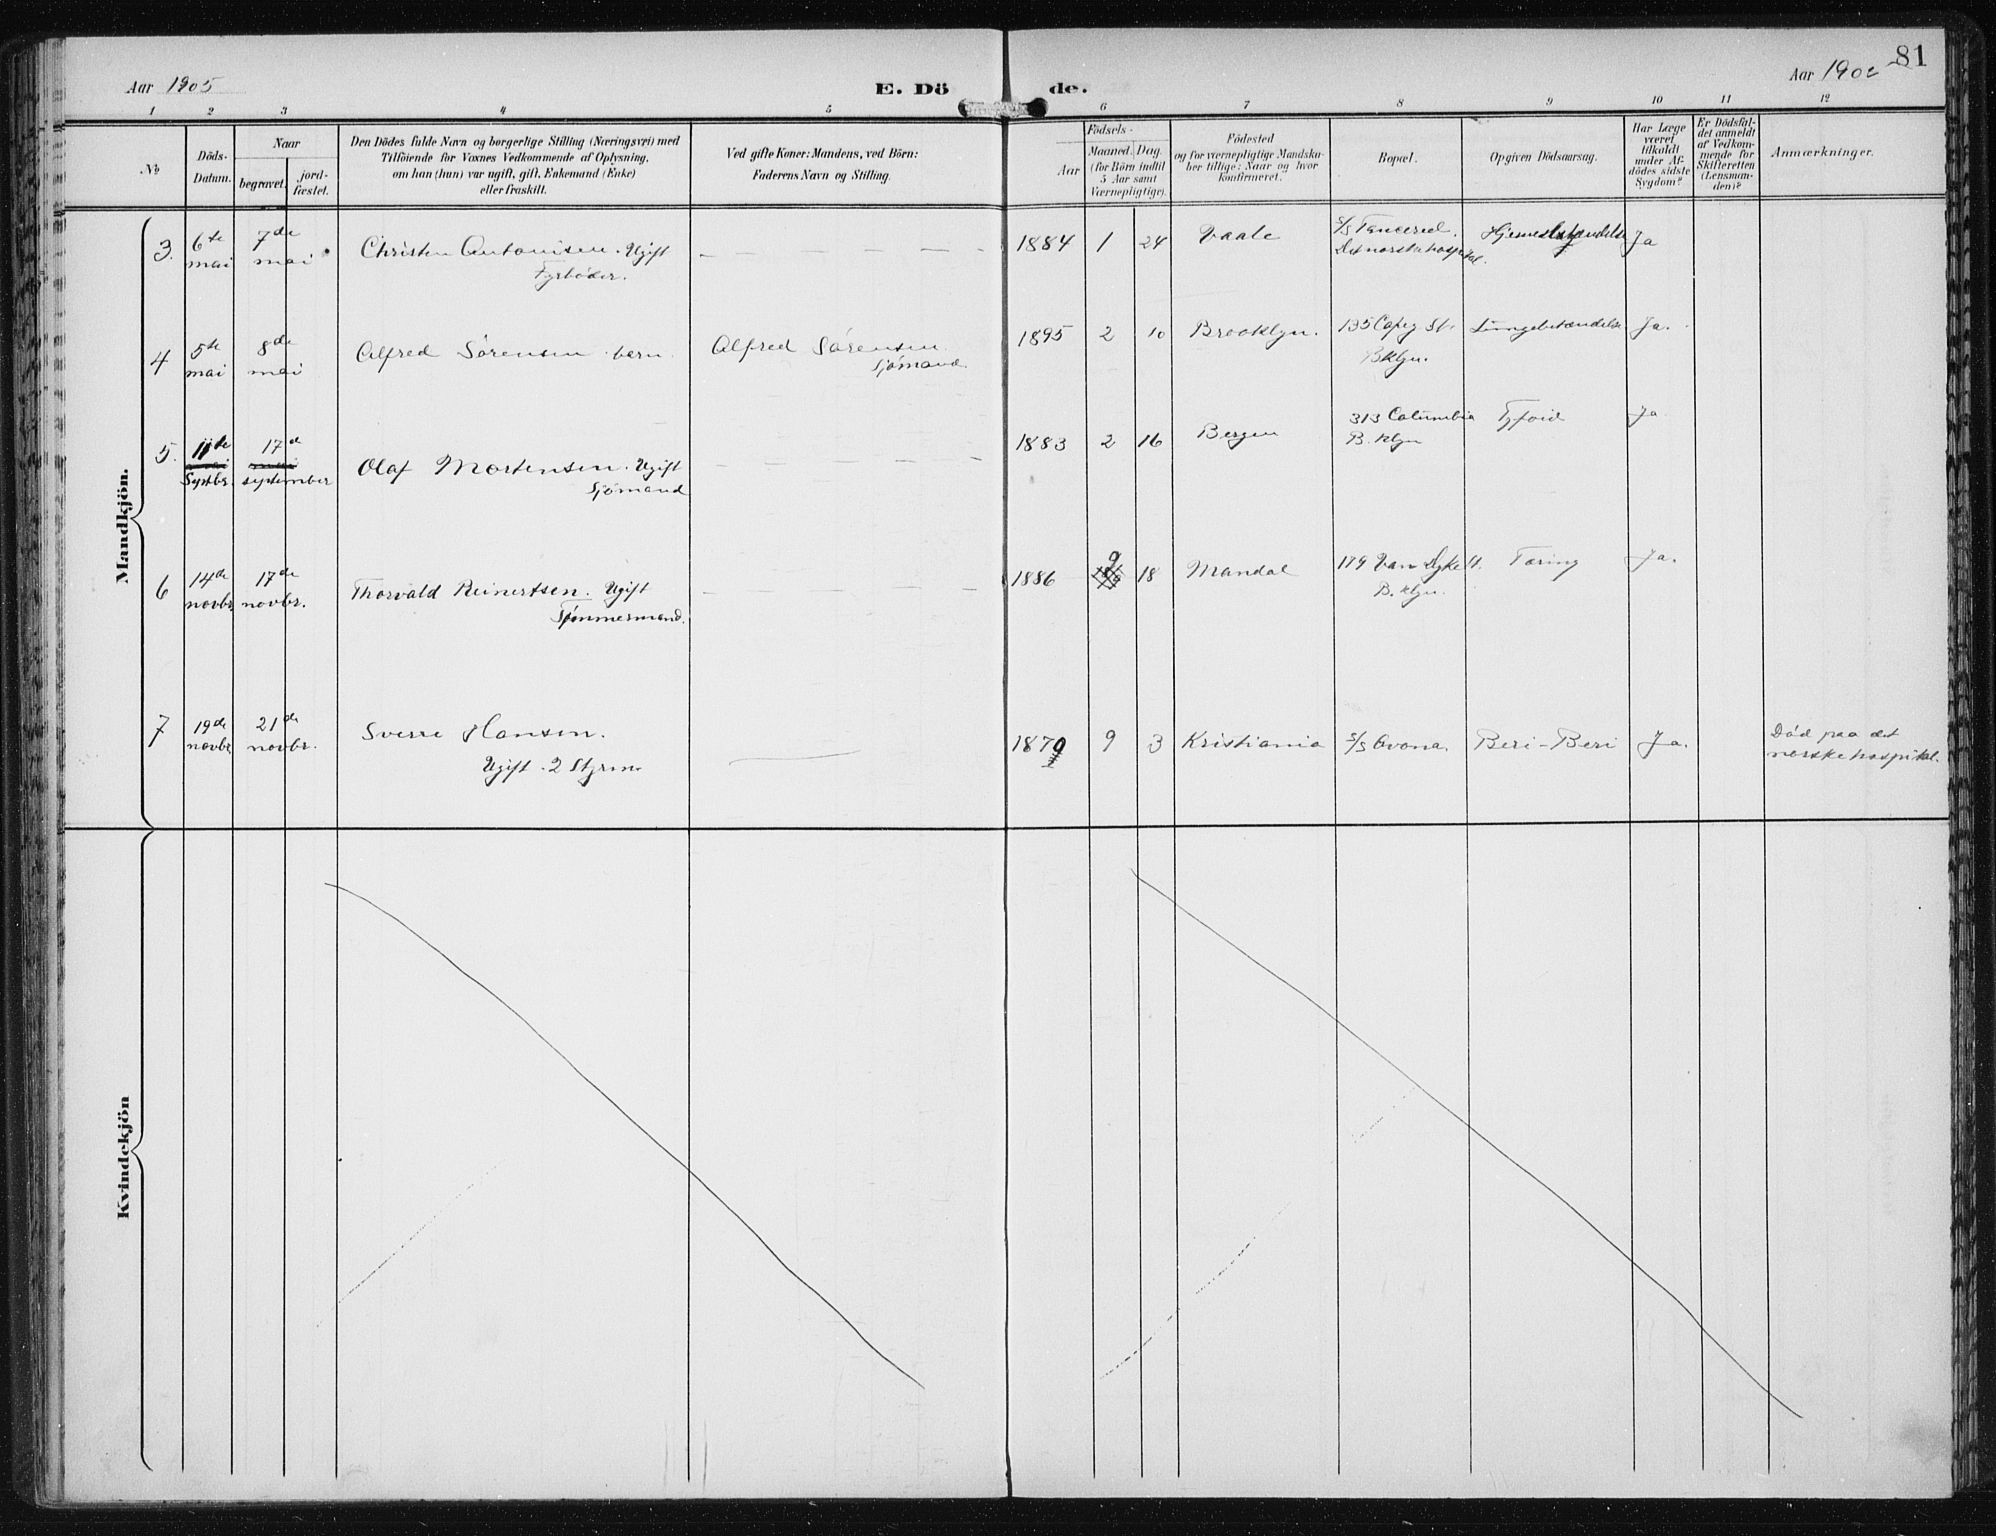 81
Aar 1905
E. Dö
de.
Aar
1 2 3 4 5 6 7 8 9 10 11 12
No
Döds-
Datum.
Naar
begravet.
jord-
fæstet.
Den Dödes fulde Navn og borgerlige Stilling (Næringsvei) med
Tilföiende for Voxnes Vedkommende af Oplysning,
om han (hun) var ugift, gift, Enkemand (Enke)
eller fraskilt.
Ved gifte Koner: Mandens, ved Börn:
Faderens Navn og Stilling.
Födsels-
Aar
Maaned. Dag
(for Börn indtil
5 Aar samt
Værnepligtige).
Födested
og for værnepligtige Mandska-
ber tillige: Naar og hvor
konfirmeret.
Bopæl.
Opgiven Dödsaarsag.
Har Læge
været
tilkaldt
under Af-
dödes sidste
Sygdom?
Er Dödsfal-
det anmeldt
af Vedkom-
mende for
Skifteretten
(Lensman-
den)?
Anmærkninger.
Mandkjön.
3. 6te mai 7de mai Christen Antonisen. Ugift
Fyrböder.
1884 1 24 Vaale S/S Tancered.
Det norske hospital.
Ja
4 5te mai 8de mai Alfred Sørensen. barn. Alfred Sørensen.
Sjömand.
1895 2 10 Brooklyn. 135 St.
Bklyn.
Lungebetændelse Ja.
5. 11te mai 17d mai
Septbr. september
Olaf Mortensen. Ugift
Sjömand
1883 2 16 Bergen 313 Columbia
B. klyn
Tyfoid Ja
6 14de novbr. 17de novbr. Thorvald Reinertsen. Ugift
Tömmermand.
1886 9 18 Mandal 179 Van Dyke St.
B. klyn.
Tæring Ja.
7 19de novbr. 21de novbr. Sverre Hansen.
Ugift. 2 Styrm.
1879 9 3 Kristiania S/S Avona. Beri-Beri Ja.
Död paa det
norske hospital.
Kvindekjön